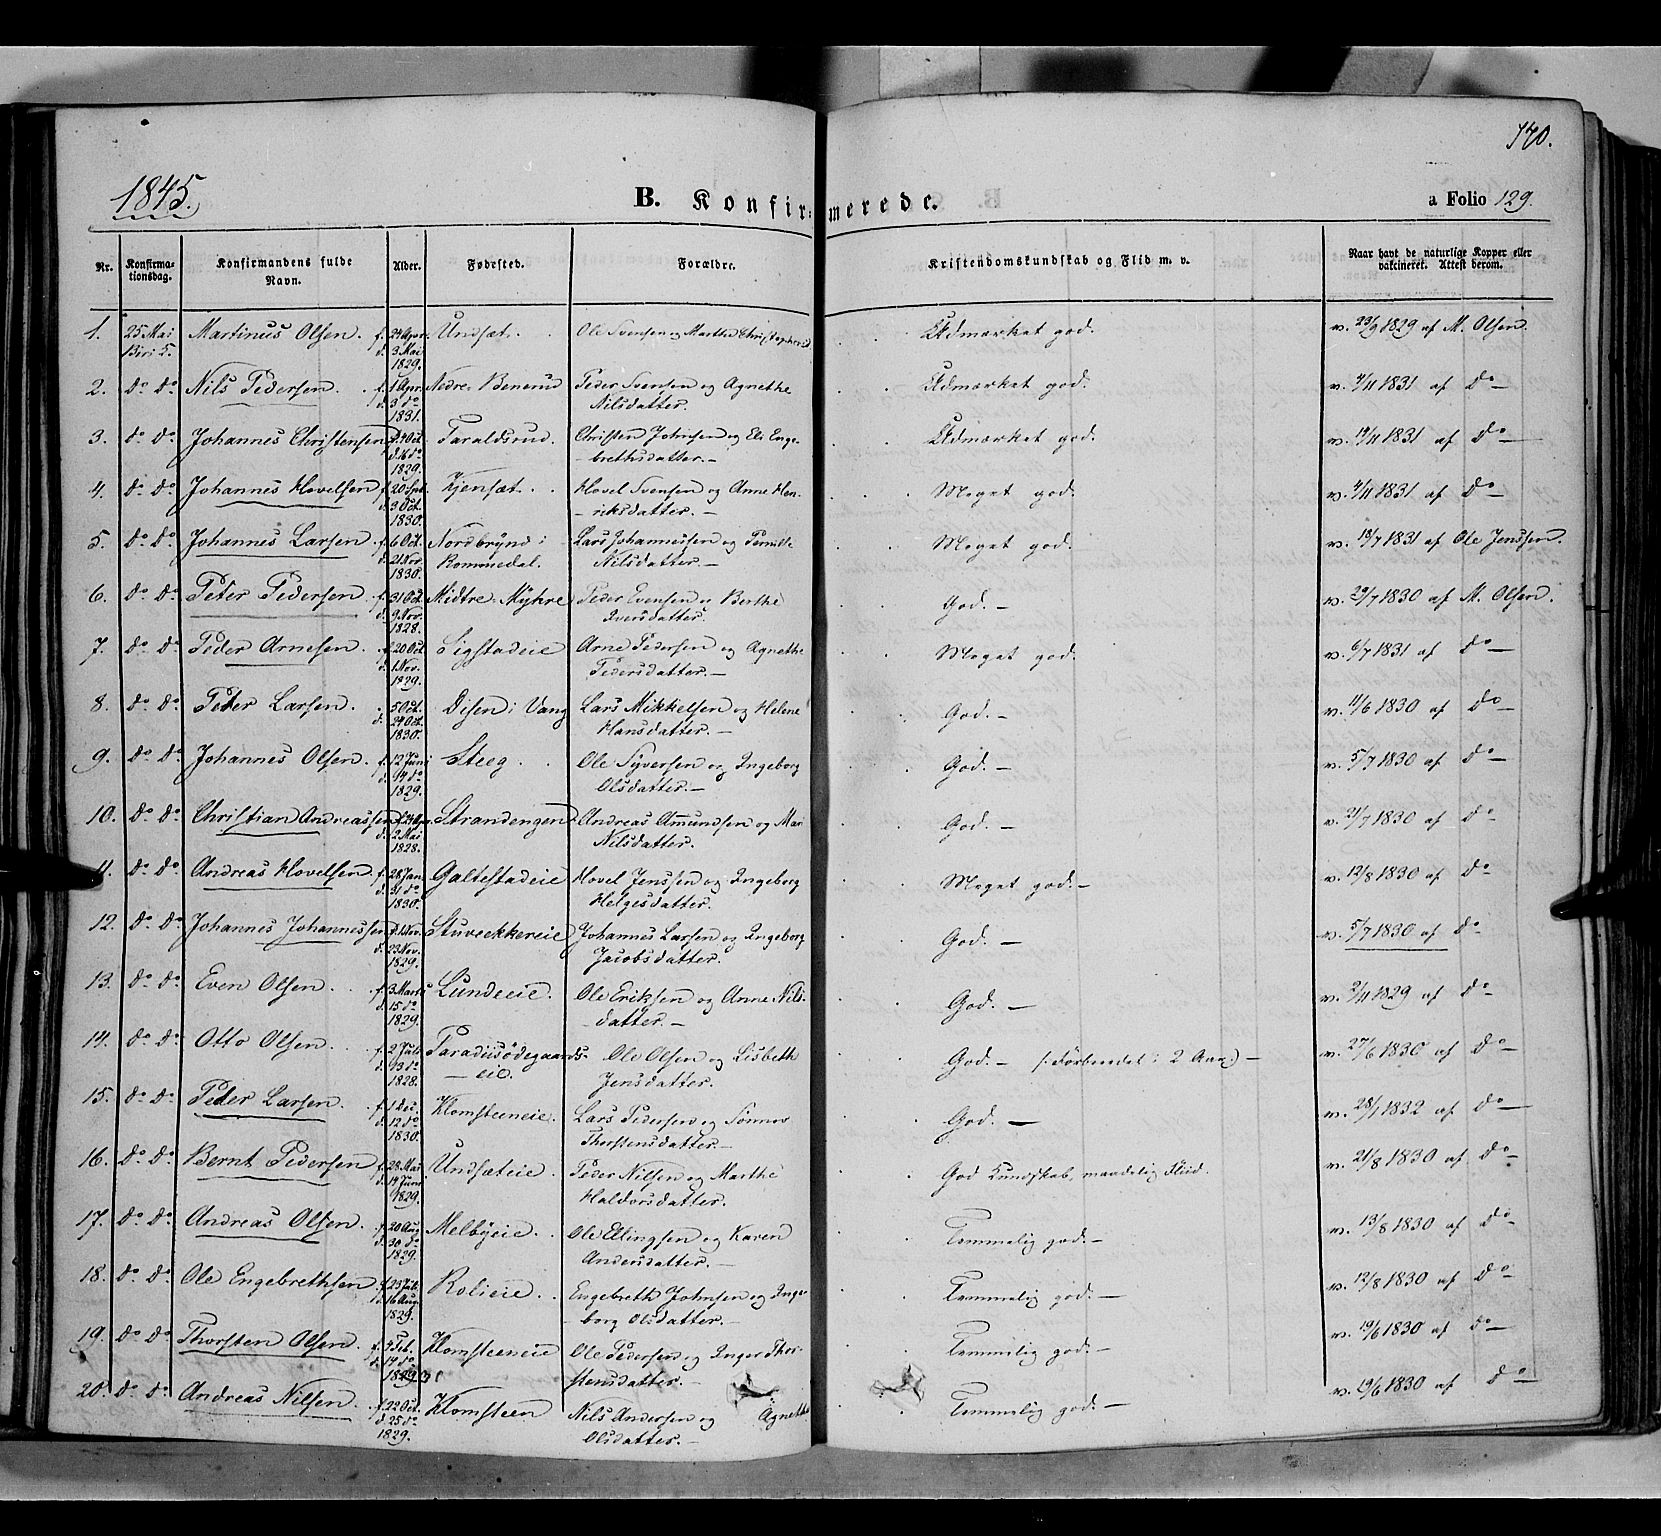 170.
1845.
B. Konfirmerede.
a Folio 129.
Nr. Konfirmationsdag. Konfirmandens fulde Navn. Alder. Fødested. Forældre. Kristendomskundskab og Flid m. v. Naar havt de naturlige Kopper eller vakcineret. Attest derom.
1. 25 Mai Biri K. Martinus Olsen. f. 24 Apr. d. 3 Mai 1829. Undset. Ole Svensen og Marthe Christophersd. Udmærket god. v. 23/9 1829 af M. Olsen.
2. do do Nils Pedersen. f. 1 Apr. d. 3 do 1831. Nedre Benerud Peder Svensen og Agnethe Nilsdatter. Udmærket god. v. 4/11 1831 af do
3. do do Johannes Christensen f. 4 Oct. d. 16 do 1829. Taraldsrud. Christen Johnsen og Eli Engebrethsdatter. Udmærket god. v. 19/11 1831 af do
4. do do Johannes Hovelsen f. 20 Sept. d. 3 Oct. 1830. Kjenset. Hovel Svensen og Anne Henriksdatter. Meget god. v. 4/11 1831 af do
5. do do Johannes Larsen. f. 6 Oct. d. 21 Nov. 1830. Nordbrynd i Rommedal. Lars Johannessen og Nilsdatter. Meget god. v. 13/7 1831 af Ole Jenssen.
6. do do Peter Pedersen. f. 31 Oct. d. 9 Nov. 1828. Midtre Myhre Peder Evensen og Berthe Iversdatter. God. v. 29/7 1830 af M. Olsen.
7. do do Peder Arnesen. f. 20 Oct. d. 1 Nov. 1829. Sigstadeie Arne Pedersen og Agnethe Pedersdatter. Meget god. v. 6/7 1831 af do
8. do do Peter Larsen. 5 Oct. d. 24 Oct. 1830. Disen i Vang Lars Mikkelsen og Helene Hansdatter. God. v. 11/6 1830 af do
9. do do Johannes Olsen. f. 12 Juni d. 14 do 1829. Steeg. Ole Syversen og Ingeborg Olsdatter. God. v. 5/7 1830 af do
10. do do Christian Andreassen f. 24 Apr. d. 2 Mai 1828. Strandengen. Andreas Amundsen og Mar Nilsdatter. God. v. 21/7 1830 af do
11. do do Andreas Hovelsen. f. 28 Jan. d. 31 do 1830. Galtestadeie Hovel Jenssen og Ingeborg Helgesdatter. Meget god. v. 12/8 1830 af do
12. do do Johannes Johannessen f. 1 Nov. d. 23 Nov. 1829. Stuveekkereie Johannes Larsen og Ingeborg Jacobsdatter. God. v. 5/7 1830 af do
13. do do Even Olsen. f. 3 Marts d. 15 do 1829. Lundeeie. Ole Eriksen og Anne Nilsdatter. God. v. 2/11 1829 af do
14. do do Otto Olsen. f. 2 Juli d. 13 do 1828. Paradiisødegaardseie. Ole Olsen og Lisbeth Jensdatter. God. (: Forberedet i 2 Aar.) v. 27/6 1830 af do
15. do do Peder Larsen. f. 1 Dec. d. 12 do 1830. Klomsteeneie. Lars Pedersen og Sønnev Thorstensdatter. God. v. 28/1 1832 af do
16. do do Bernt Pedersen f. 28 Mai d. 14 Juni 1829. Undseteie. Peder Nilsen og Marthe Haldorsdatter. God Kundskab, maadelig Fliid. v. 21/8 1830 af do
17. do do Andreas Olsen. f. 20 Aug. d. 30 do 1829. Melbyeie. Ole Ellingsen og Karen Andersdatter. Temmelig god. v. 13/8 1830 af do
18. do do Ole Engebrethsen. f. 23 Juli d. 16 Aug. 1829. Rolieie. Engebreth Johnsen og Ingeborg Olsdatter. Temmelig god. v. 12/8 1830 af do
19. do do Thorsten Olsen. f. 4 Feb. d. 14 do Klomsteeneie Ole Pedersen og Inger Thorstensdatter. Temmelig god. v. 19/6 1830 af do
20. do do Andreas Nilsen. f. 22 Oct. d. 25 do 1829. Klomsteen Nils Andersen og Agnethe Olsdatter. Temmelig god. v. 19/6 1830 af do